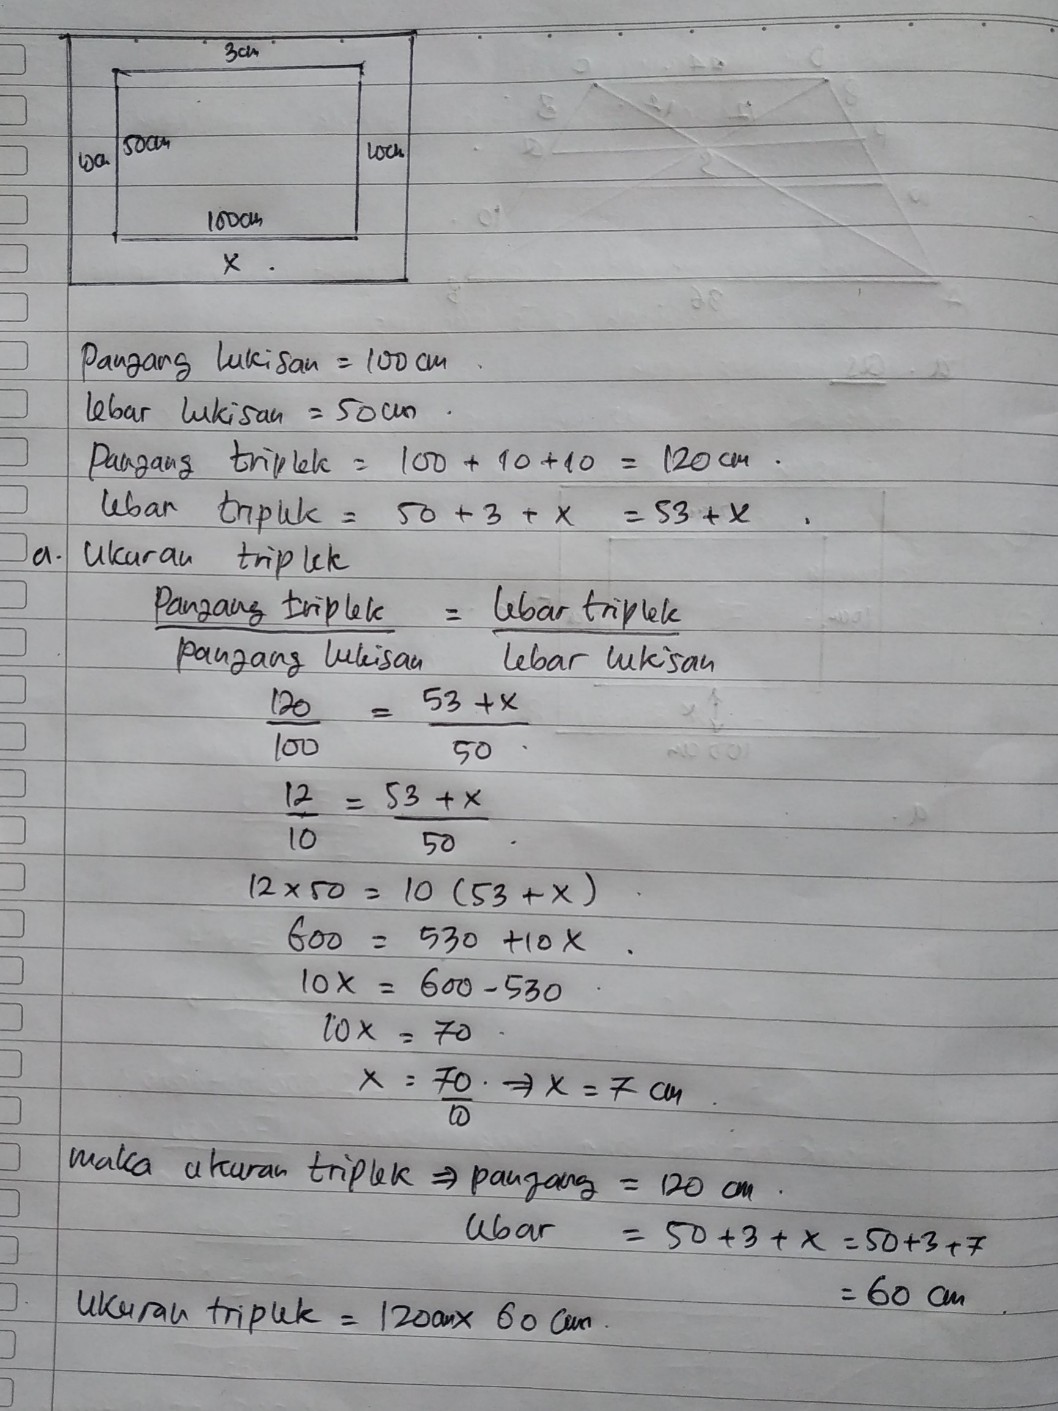 3cm
50cm
10cm 10cm
100cm
x
Panjang lukisan = 100 cm
lebar lukisan = 50 cm
Panjang triplek = 100 + 10 + 10 = 120 cm
lebar triplek = 50 + 3 + x = 53 + x
a. Ukuran triplek
Panjang triplek = lebar triplek
panjang lukisan lebar lukisan
120 = 53 + x
100 50
12 = 53 + x
10 50
12 x 50 = 10 (53 + x)
600 = 530 + 10x
10x = 600 - 530
10x = 70
x = 70 ⇒ x = 7 cm
10
maka ukuran triplek ⇒ panjang = 120 cm
lebar = 50 + 3 + x = 50 + 3 + 7
= 60 cm
Ukuran triplek = 120 cm x 60 cm